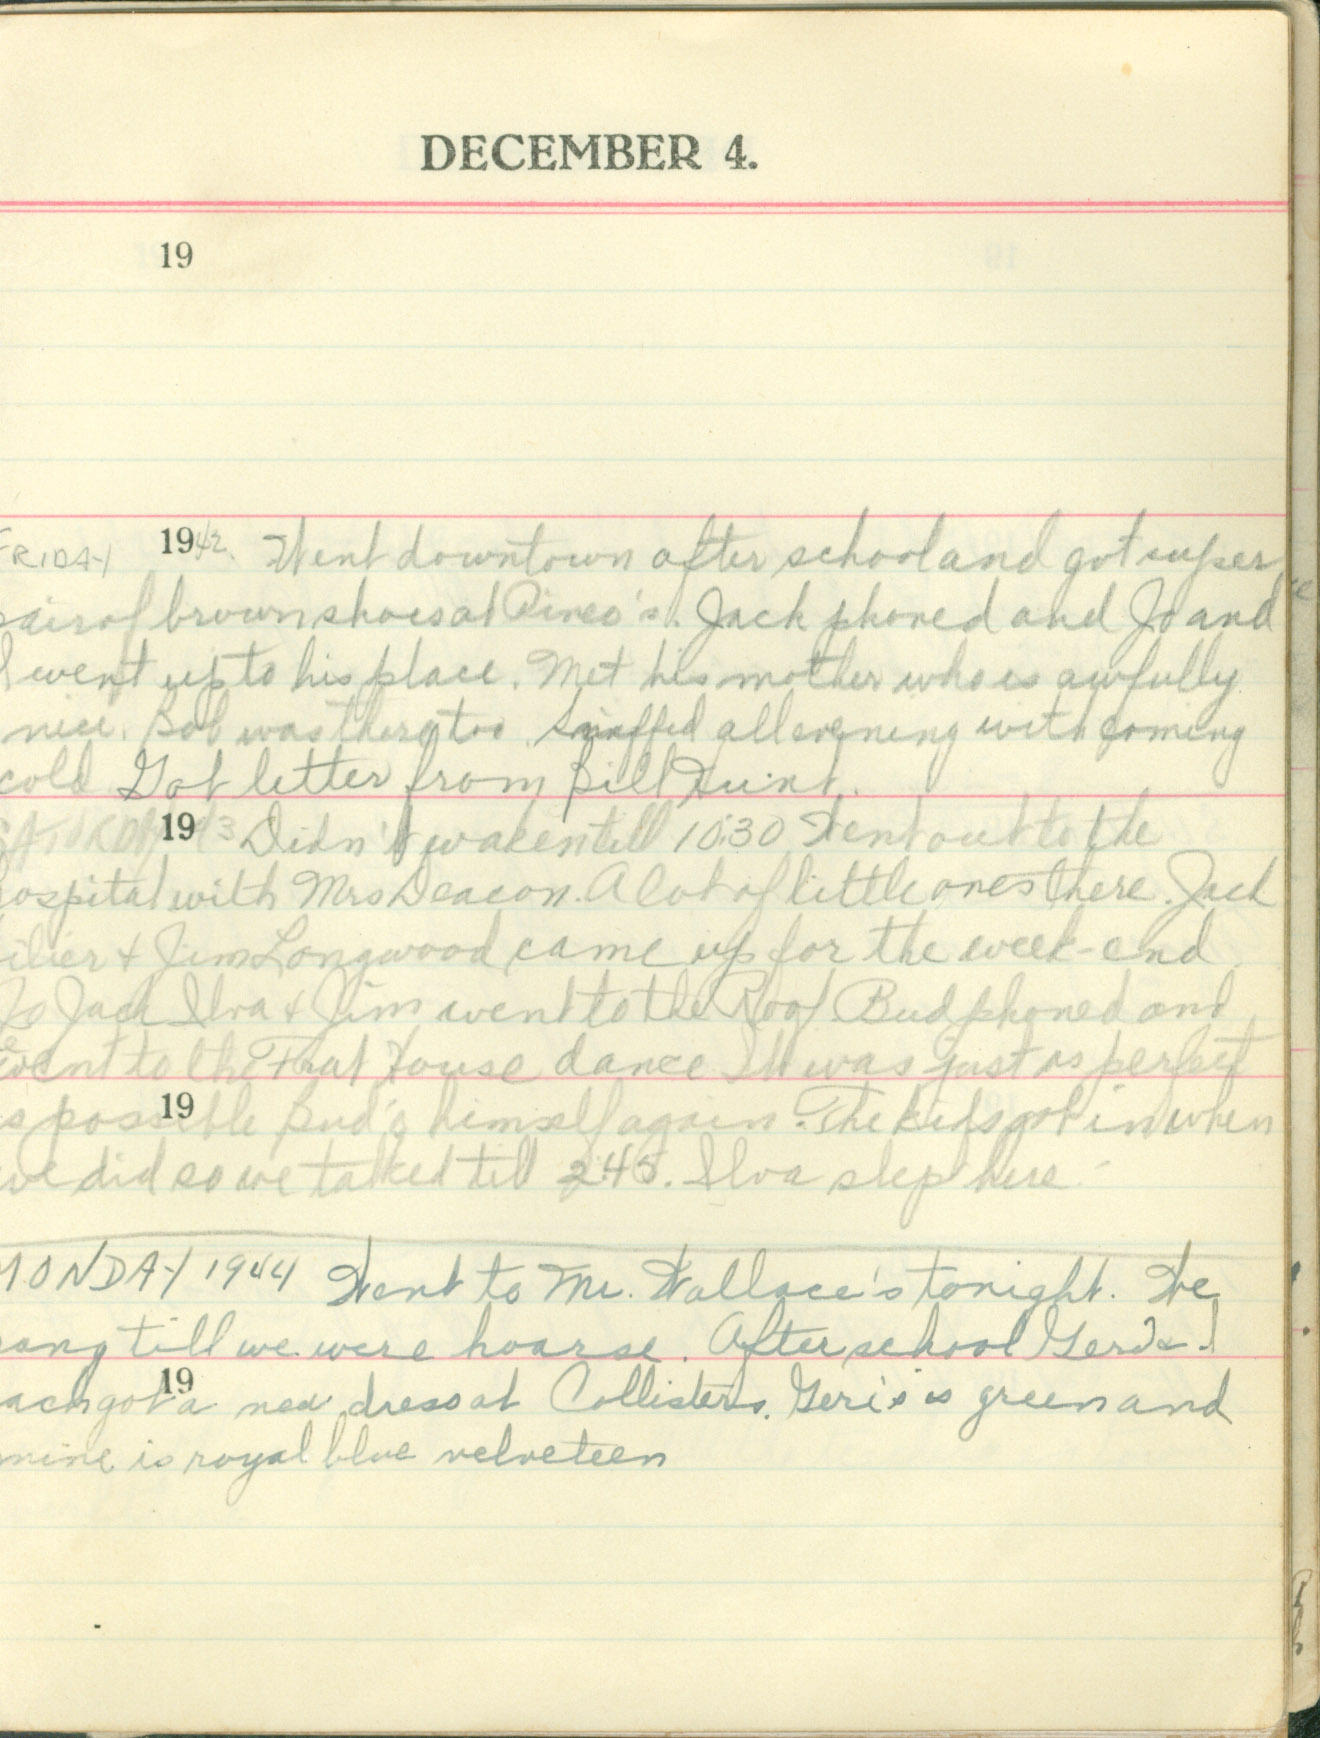 DECEMBER 4.
19
FRIDAY 1942. Went downtown after school and got super
pair of brown shoes at Pineo's. Jack phoned and Jo and
I went up to his place. Met his mother who is awfully
nice. Bob was there too. Sniffed all evening with coming
cold Got letter from Bill Hunt.
SATURDAY 1943 Didn't waken till 10:30 Went out to the
hospital with Mrs Deacon. A lot of little ones there. Jack
& Jim Longwood came up for the week-end
Jo Jack Ilva & Jim went to the Roof Bud phoned and
went to the Frat House dance It was just as perfect
19
as possible Bud's himself again. The kids got in when
we did so we talked till 2:45. Ilva slep here.
MONDAY 1944 Went to Mr. Wallace's tonight. We
sang till we were hoarse. After school Geri & I
19
each got a new dress at Collisters. Geri's is green and
mine is royal blue velveteen